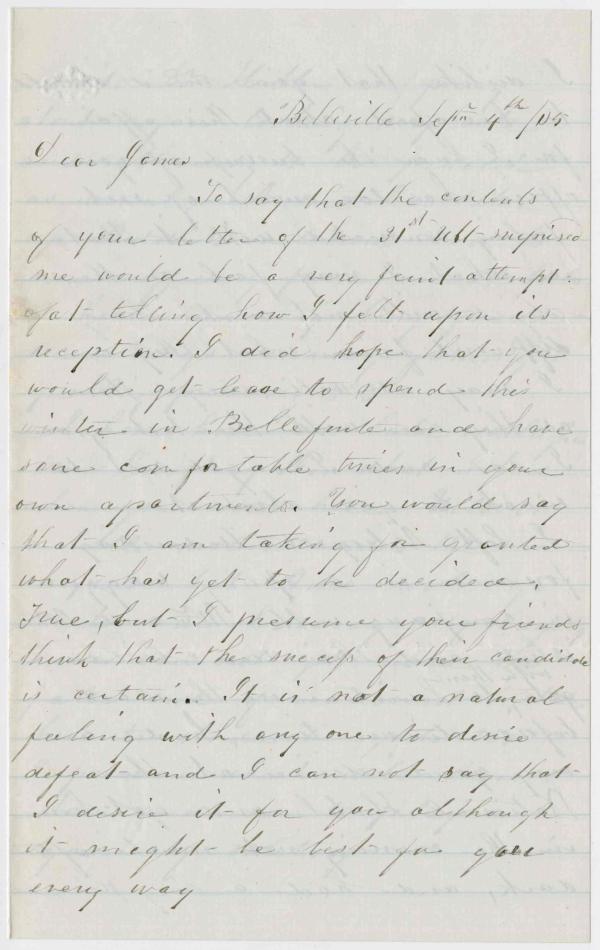 Belleville Sepm 4th /65
Dear James
To say that the contents
of your letter of the 31st ult surprised
me would be a very feint attempt
at telling how I felt upon its
reception. I did hope that you
would get leave to spend this
winter in Bellefonte and have
some comfortable times in your
own apartments. You would say
that I am taking for granted
what has yet to be decided.
True, but I presume your friends
think that the success of their candidate
is certain. It is not a natural
feeling with any one to desire
defeat and I can not say that
I desire it for you although
it might be best for you
every way